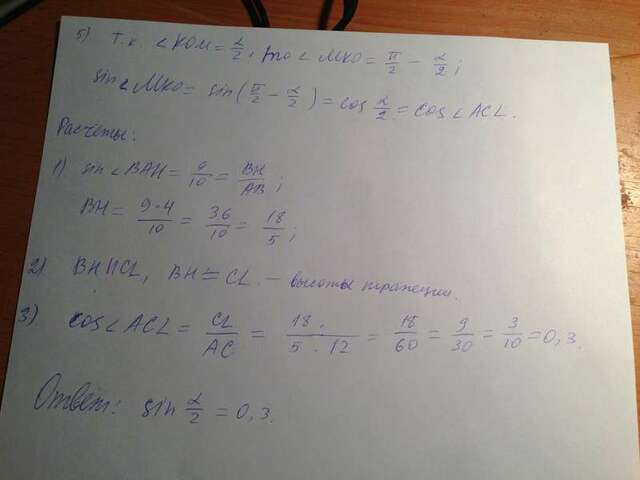 5) Т.к. ∠KOM = α/2, то ∠MKO = π/2 − α/2;
sin∠MKO = sin(π/2 − α/2) = cos α/2 = cos∠ACL.
Расчёты:
1) sin∠BAH = 9/10 = BH/AB;
BH = 9·4/10 = 36/10 = 18/5;
2) BH∥CL, BH = CL – высоты трапеции.
3) cos∠ACL = CL/AC = 18·/5·12 = 18/60 = 9/30 = 3/10 = 0,3.
Ответ: sin α/2 = 0,3.